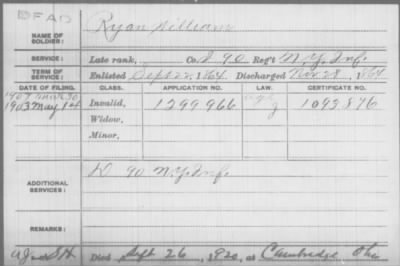 DEAD
NAME OF SOLDIER: Ryan William
SERVICE: Late rank, Co. D 90 Reg't N.Y. Inf.
TERM OF SERVICE: Enlisted Sept 22, 1864 Discharged Nov 28, 1864
DATE OF FILING. CLASS. APPLICATION NO. LAW. CERTIFICATE NO.
1903 May 14 Invalid, 1299966 1093876
Widow,
Minor,
ADDITIONAL SERVICES: D 90 N.Y. Inf.
REMARKS:
Died Sept 26, 1920, at Cambridge Ohio